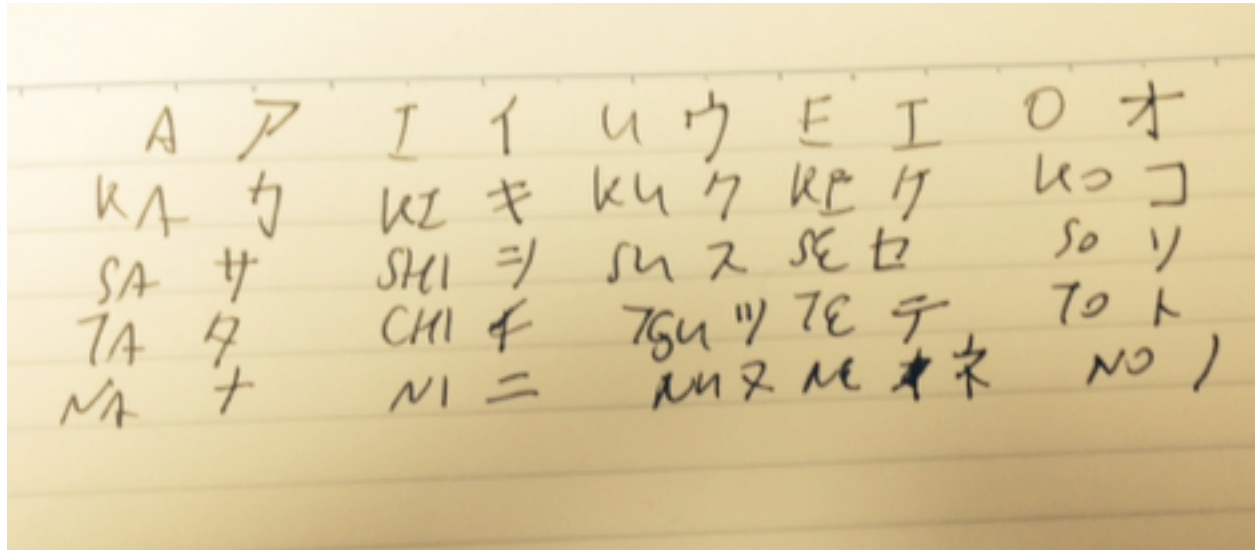 A ア I イ U ウ E エ O オ
KA カ KI キ KU ク KE ケ KO コ
SA サ SHI シ SU ス SE セ SO ソ
TA タ CHI チ TSU ツ TE テ TO ト
NA ナ NI ニ NU ヌ NE ネ NO ノ